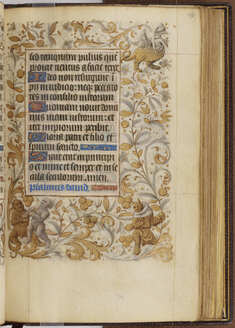 sed tanquam puluis que
proicit ventus a facie terre
Ideo non resurgunt i
pii in iudicio: neqz peccato
res in consilio iustorum
Quoniam nouit domi
nus viam iustorum: et
iter impiorum peribit.
Gloria patri et filio et
spiritui sancto
Sicut erat in principi
o et nunc et semper et in se
cula seculorum. amen.
psalmus dauid